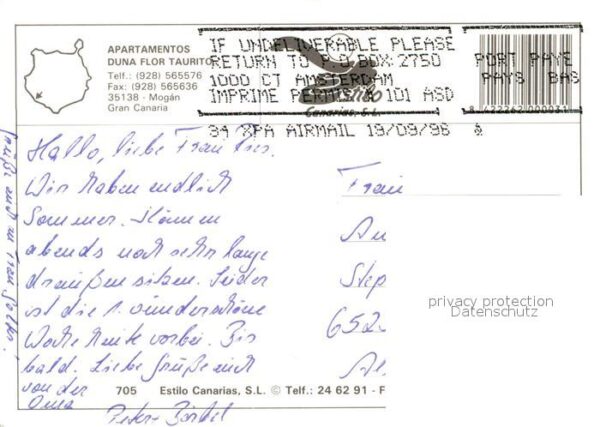 APARTAMENTOS
DUNA FLOR TAURITO
Telf.: (928) 565576
Fax: (928) 565636
35138 - Mogán
Gran Canaria
IF UNDELIVERABLE PLEASE
RETURN TO P.O.BOX:2750
1000 CT AMSTERDAM
IMPRIME PERMIT № 101 ASD
Estilo
Canarias, S.L.
PORT PAYE
PAYS BAS
8 422262 000031
34 XPA AIRMAIL 19/09/96
Hallo, liebe Frau
Wir haben endlich
Sommer. Können
abends noch sehr lange
draußen sitzen. Leider
ist die 1. wunderschöne
Woche heute vorbei. Bis
bald. Liebe Grüße auch
von der
Oma
Peter + Bärbel
Grüße auch an Frau
Frau
An
Step
652
Al
privacy protection
Datenschutz
705 Estilo Canarias, S.L. © Telf.: 24 62 91 - F